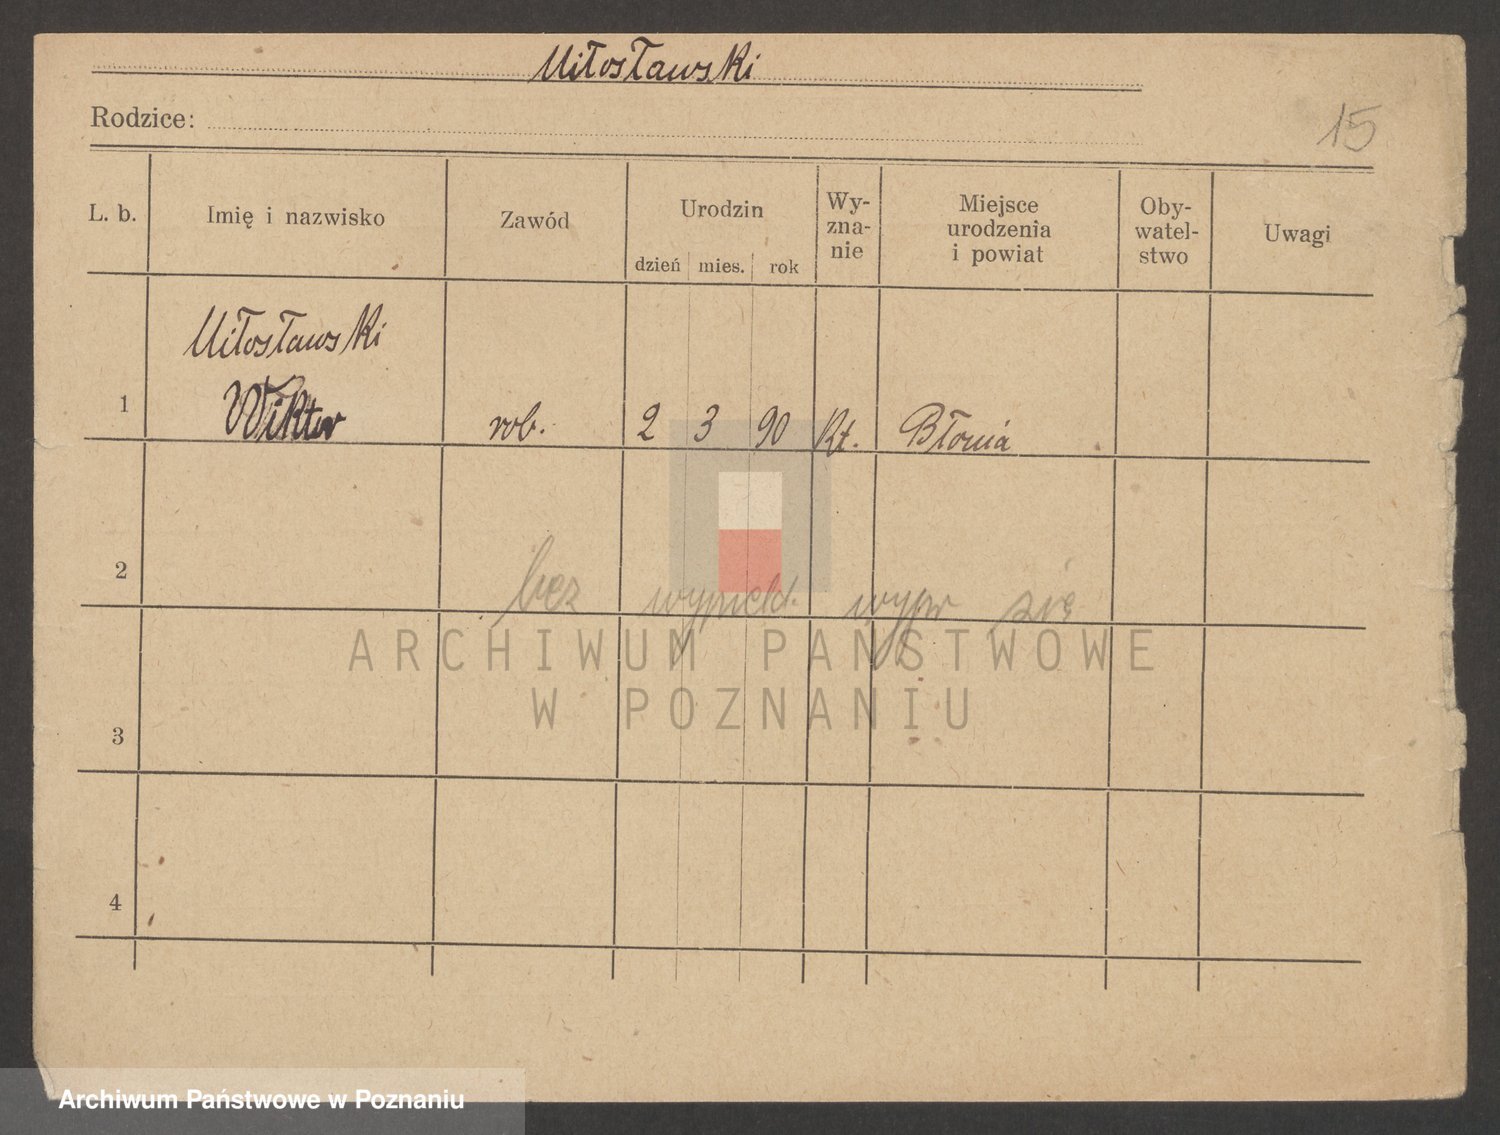 Miłosławski
Rodzice:
15
L. b. Imię i nazwisko Zawód Urodzin dzień mies. rok Wy-
zna-
nie Miejsce
urodzenia
i powiat Oby-
watel-
stwo Uwagi
Miłosławski
1 Wiktor rob. 2 3 90 Rt. Błonia
2
bez się
ARCHIWUM PAŃSTWOWE
W POZNANIU
3
4
Archiwum Państwowe w Poznaniu